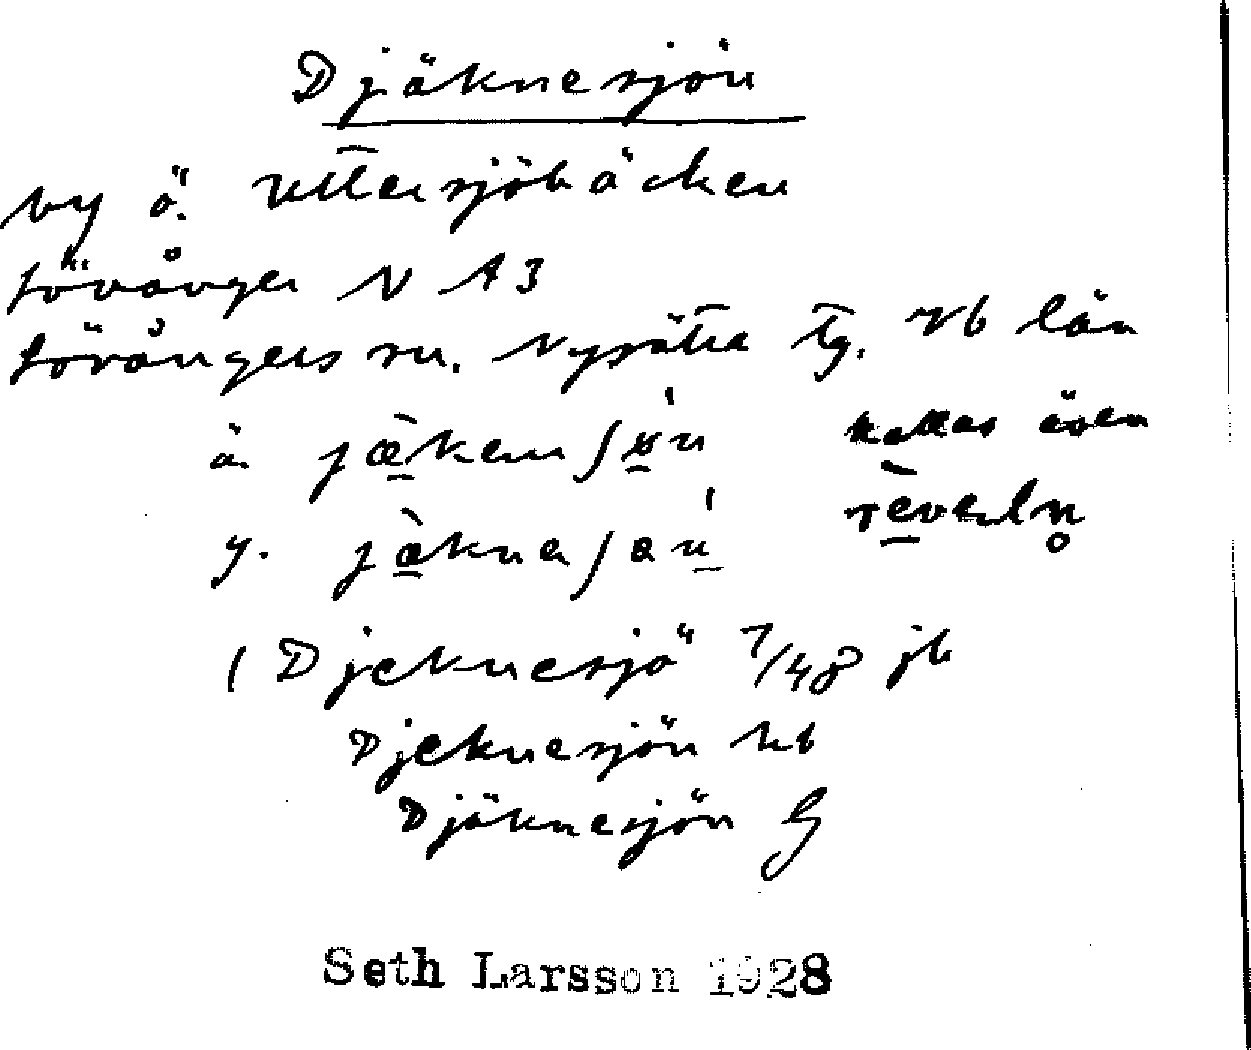 Djäknesjön
by ö. Uttersjöbäcken
Lövånger N A3
Lövångers sn. Nysätra tg. Vb län
ä. jæ̀kenʃøń kallas även
y. jæ̀knaʃøń rèveḷṇ
( Djeknesjö 7/48 jb
Djeknesjön kb
Djäknesjön G
Seth Larsson 1928